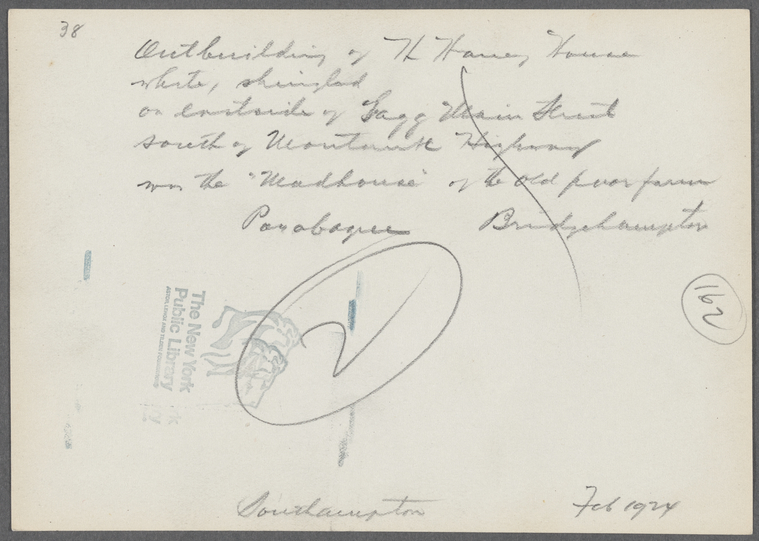 38
Outbuilding of House
white, shingled
on eastside of Sagg Main Street
south of Montauk Highway
was the "Madhouse" of the old poor farm
Poxabogue Bridgehampton
The New York
Public Library
162
Southampton Feb 1924